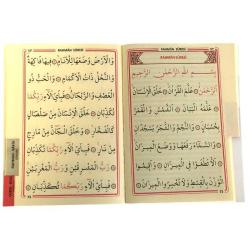 RAHMÂN SÛRESİ
RAHMÂN SÛRESİ
بِسْمِ اللّٰهِ الرَّحْمٰنِ الرَّحِيمِ
اَلرَّحْمٰنُ عَلَّمَ الْقُرْاٰنَ خَلَقَ الْاِنْسَانَ
عَلَّمَهُ الْبَيَانَ اَلشَّمْسُ وَالْقَمَرُ
بِحُسْبَانٍ وَالنَّجْمُ وَالشَّجَرُ يَسْجُدَانِ
وَالسَّمَاءَ رَفَعَهَا وَوَضَعَ الْمِيزَانَ
اَلَّا تَطْغَوْا فِي الْمِيزَانِ وَاَقِيمُوا
الْوَزْنَ بِالْقِسْطِ وَلَا تُخْسِرُوا الْمِيزَانَ
RAHMÂN SÛRESİ
وَالْاَرْضَ وَضَعَهَا لِلْاَنَامِ فِيهَا فَاكِهَةٌ
وَالنَّخْلُ ذَاتُ الْاَكْمَامِ وَالْحَبُّ ذُو
الْعَصْفِ وَالرَّيْحَانُ فَبِاَيِّ اٰلَاءِ رَبِّكُمَا
تُكَذِّبَانِ خَلَقَ الْاِنْسَانَ مِنْ صَلْصَالٍ
كَالْفَخَّارِ وَخَلَقَ الْجَانَّ مِنْ مَارِجٍ
مِنْ نَارٍ فَبِاَيِّ اٰلَاءِ رَبِّكُمَا تُكَذِّبَانِ
رَبُّ الْمَشْرِقَيْنِ وَرَبُّ الْمَغْرِبَيْنِ
فَبِاَيِّ اٰلَاءِ رَبِّكُمَا تُكَذِّبَانِ